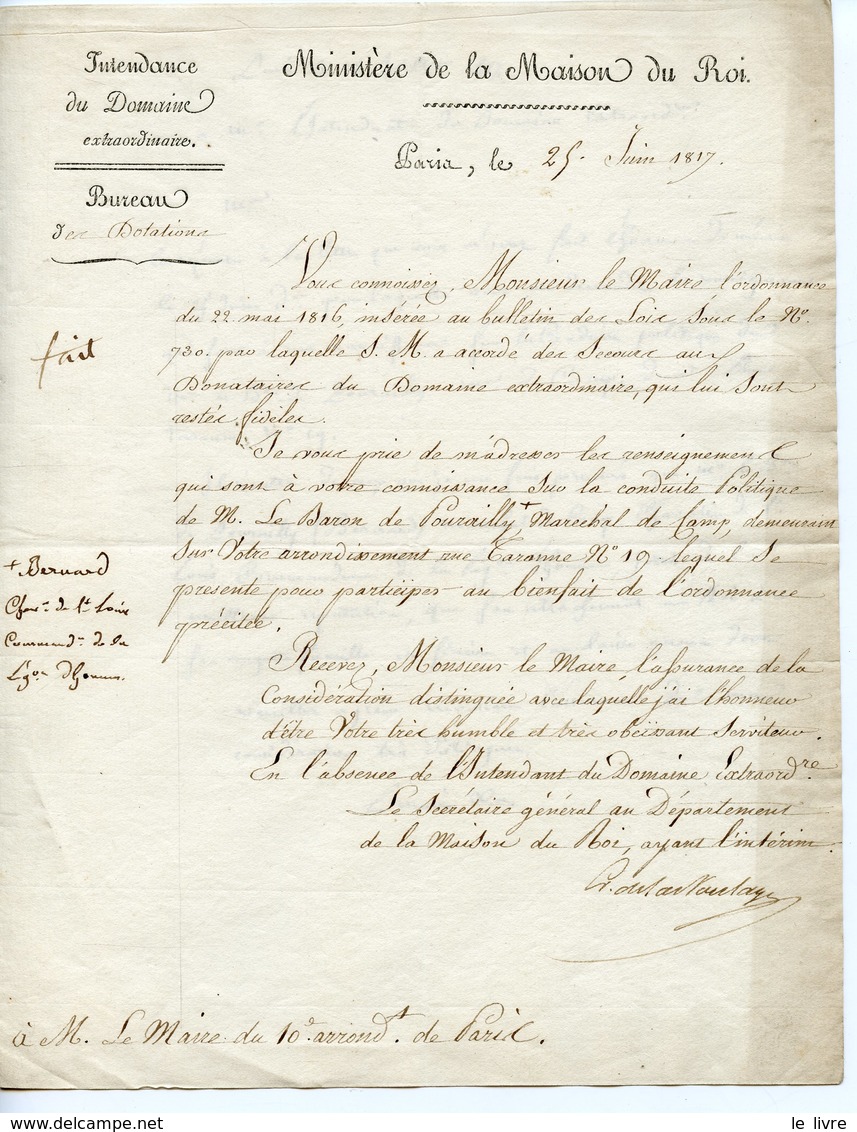 Intendance
du Domaine
extraordinaire.
Bureau
des Dotations
Ministère de la Maison du Roi.
Paris, le 25. Juin 1817.
fait
Vous connoissez, Monsieur le Maire, l'ordonnance
du 22 mai 1816, insérée au bulletin des Lois sous le N.o
730. par laquelle S. M. a accordé des Secours aux
Donataires du Domaine extraordinaire, qui lui sont
restés fidèles.
Je vous prie de m'adresser les renseignemens
qui sont à votre connoissance sur la conduite Politique
de M. Le Baron de Pourailly + Marechal de Camp, demeurant
sur Votre arrondissement rue Taranne N.o 19. lequel se
presente pour participer au bienfait de l'ordonnance
précitée.
+ Bernard
Chev.er de St. Louis
Command.r de la
Lég.on d'honneur.
Recevez, Monsieur le Maire, l'assurance de la
Considération distinguée avec laquelle j'ai l'honneur
d'être Votre très humble et très obéissant serviteur.
En l'absence de l'Intendant du Domaine Extraord.re
Le Secrétaire général au Département
de la Maison du Roi, ayant l'intérim.
à M. Le Maire du 10.e arrond.t de Paris.
le livre